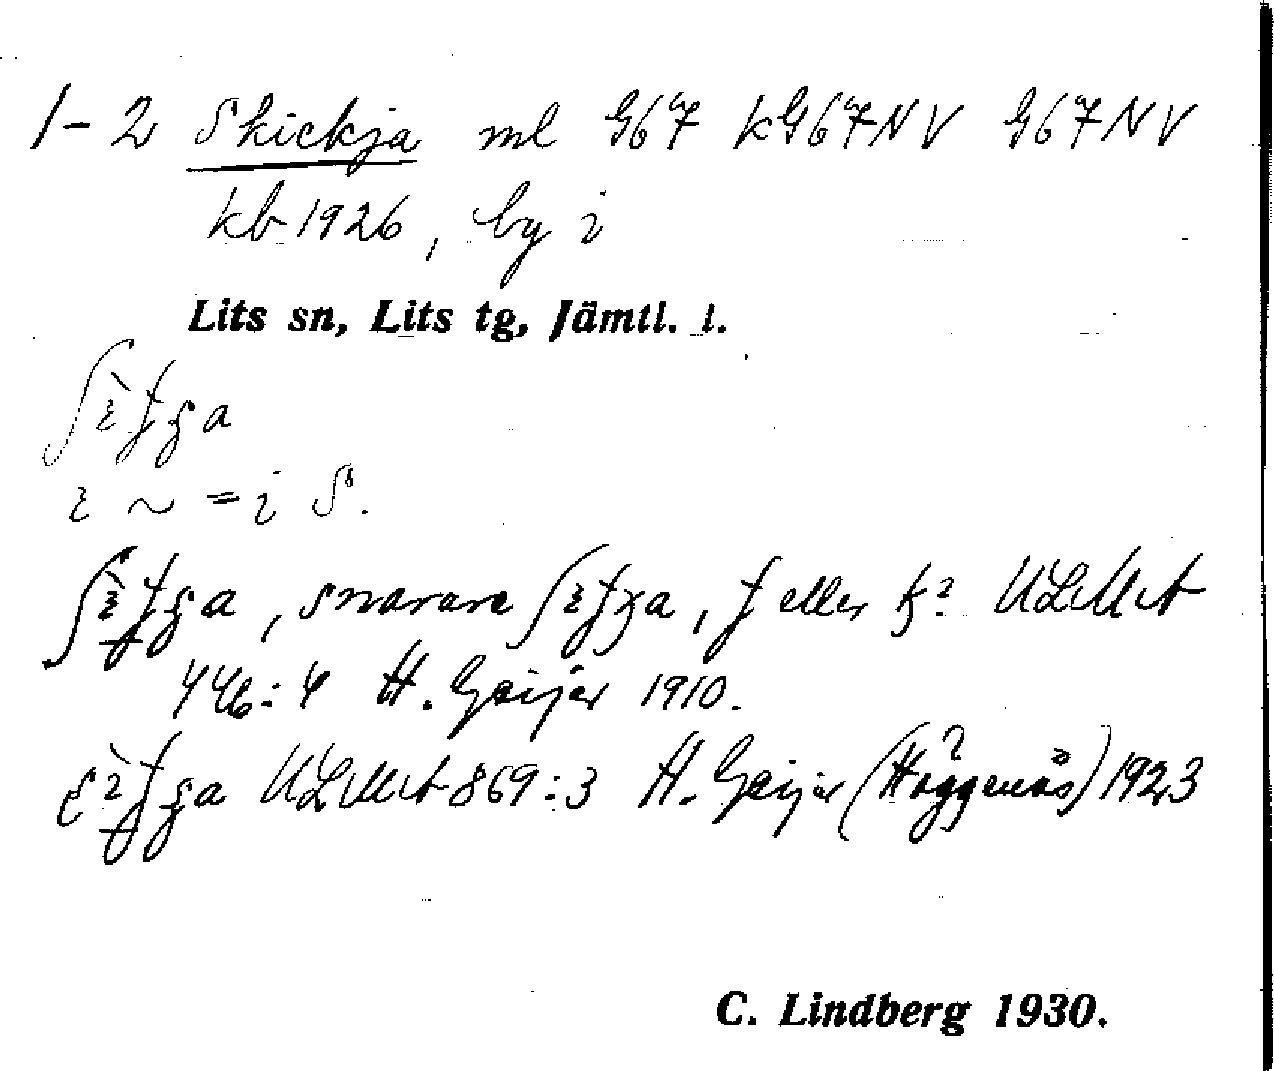 1-2 Skickja ml G67 kG67NV G67NV
kb 1926, by i
Lits sn, Lits tg, Jämtl. l.
= i S.
, snarare , eller ULMA
446:4 H. Geijer 1910.
ULMA 869:3 H. Geijer (Häggenås) 1923
C. Lindberg 1930.